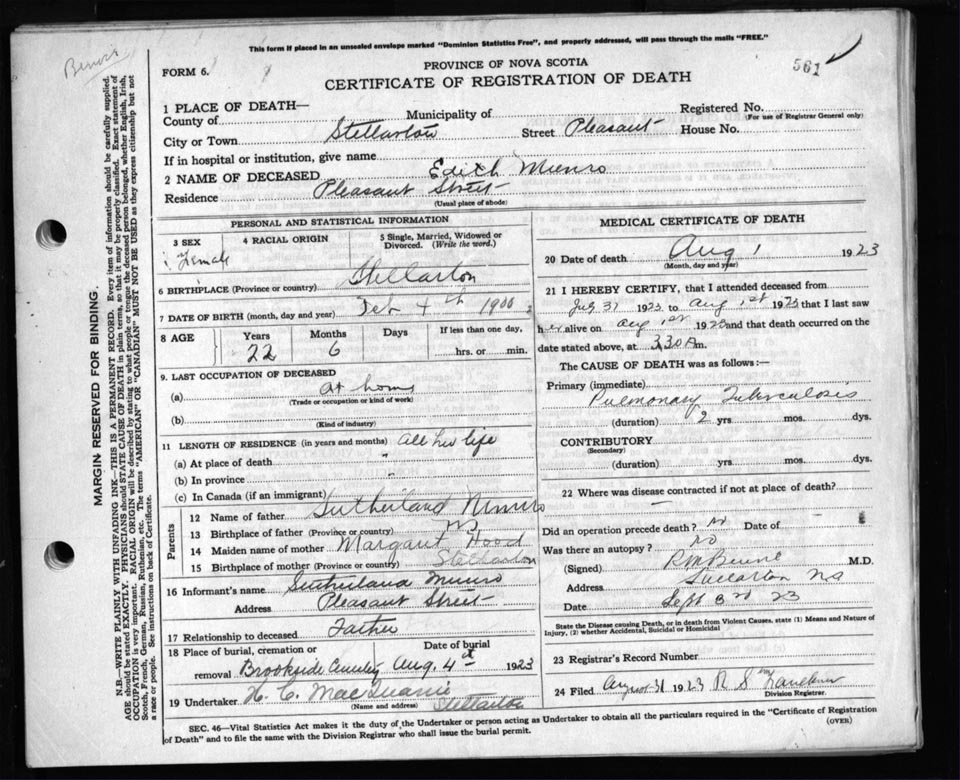 This form if placed in an unsealed envelope marked "Dominion Statistics Free", and properly addressed, will pass through the mails "FREE."
PROVINCE OF NOVA SCOTIA
FORM 6.
CERTIFICATE OF REGISTRATION OF DEATH
561
1 PLACE OF DEATH—
County of Municipality of
Registered No.
(For use of Registrar General only)
City or Town Stellarton Street Pleasant House No.
If in hospital or institution, give name
2 NAME OF DECEASED Edith Munro
Residence Pleasant Street
(Usual place of abode)
PERSONAL AND STATISTICAL INFORMATION
3 SEX
Female
4 RACIAL ORIGIN
5 Single, Married, Widowed or Divorced. (Write the word.)
6 BIRTHPLACE (Province or country) Stellarton
7 DATE OF BIRTH (month, day and year) Feb 4th 1900
8 AGE
Years
22
Months
6
Days
If less than one day,
hrs. or min.
9. LAST OCCUPATION OF DECEASED
(a) At home
(Trade or occupation or kind of work)
(b)
(Kind of industry)
11 LENGTH OF RESIDENCE (in years and months) All her life
(a) At place of death "
(b) In province "
(c) In Canada (if an immigrant)
Parents
12 Name of father Sutherland Munro
13 Birthplace of father (Province or country) NS
14 Maiden name of mother Margaret Hood
15 Birthplace of mother (Province or country) Stellarton
16 Informant's name Sutherland Munro
Address Pleasant Street
17 Relationship to deceased Father
18 Place of burial, cremation or removal Brookside Cemetery
Date of burial
Aug. 4th 1923
19 Undertaker H. C. MacQuarrie
(Name and address) Stellarton
MEDICAL CERTIFICATE OF DEATH
20 Date of death Aug 1 1923
(Month, day and year)
21 I HEREBY CERTIFY, that I attended deceased from
July 31 1923 to Aug 1st 1923 that I last saw
her alive on Aug 1st 1923 and that death occurred on
date stated above, at 3.30 A m.
The CAUSE OF DEATH was as follows:—
Primary (immediate)
Pulmonary Tuberculosis
(duration) 2 yrs. mos. dys.
CONTRIBUTORY
(Secondary)
(duration) yrs mos. dys.
22 Where was disease contracted if not at place of death?
—
Did an operation precede death? No Date of
Was there an autopsy? No
(Signed) M.D.
Address Stellarton NS
Date Sept 3rd 23
State the Disease causing Death, or in death from Violent Causes, state (1) Means and Nature of
Injury, (2) whether Accidental, Suicidal or Homicidal
23 Registrar's Record Number
24 Filed August 31 1923 R S
Division Registrar.
SEC. 46—Vital Statistics Act makes it the duty of the Undertaker or person acting as Undertaker to obtain all the particulars required in the "Certificate of Registration
of Death" and to file the same with the Division Registrar who shall issue the burial permit.
(OVER)
MARGIN RESERVED FOR BINDING.
N.B.—WRITE PLAINLY WITH UNFADING INK—THIS IS A PERMANENT RECORD. Every item of information should be carefully supplied.
AGE should be stated EXACTLY. PHYSICIANS should STATE CAUSE OF DEATH in plain terms, so that it may be properly classified. Exact statement of
OCCUPATION is very important. RACIAL ORIGIN will be described by stating to what people or tongue the deceased person belonged, whether English, Irish,
Scotch, French, German, Russian, Ruthenian, etc. The terms "AMERICAN" OR "CANADIAN" MUST NOT BE USED as they express citizenship but not
a race or people. See instructions on back of Certificate.